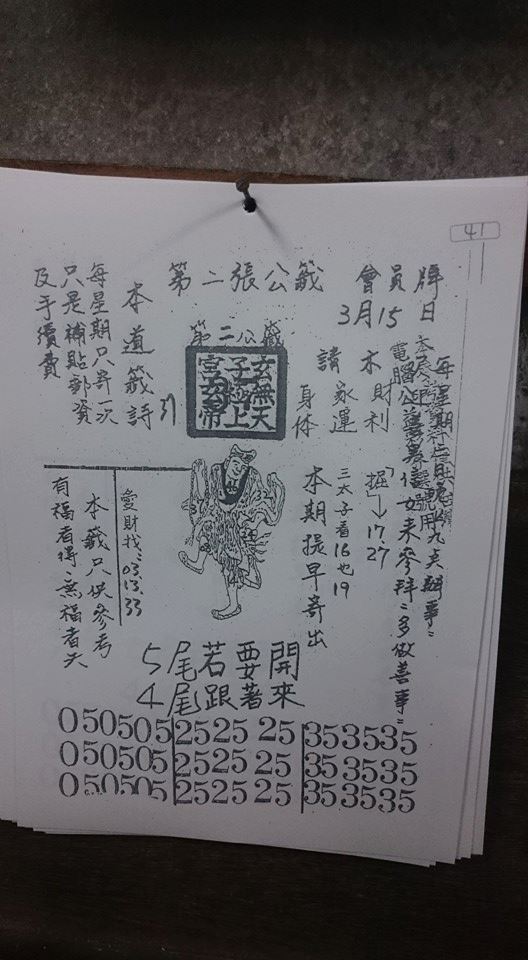 41
會員牌
第二張公籤
3月15日
第二公籤
每星期
本財利
請家運
身体
本道籤詩
每星期只寄一次
只是補貼郵資
及手續費
信女來參拜多做善事
「掘」→17.27
三太子看16也19
本期提早寄出
愛財找:03.13.33
本籤只供參考
有福者得、無福者失
5尾若要開
4尾跟著來
050505 252525 353535
050505 252525 353535
050505 252525 353535